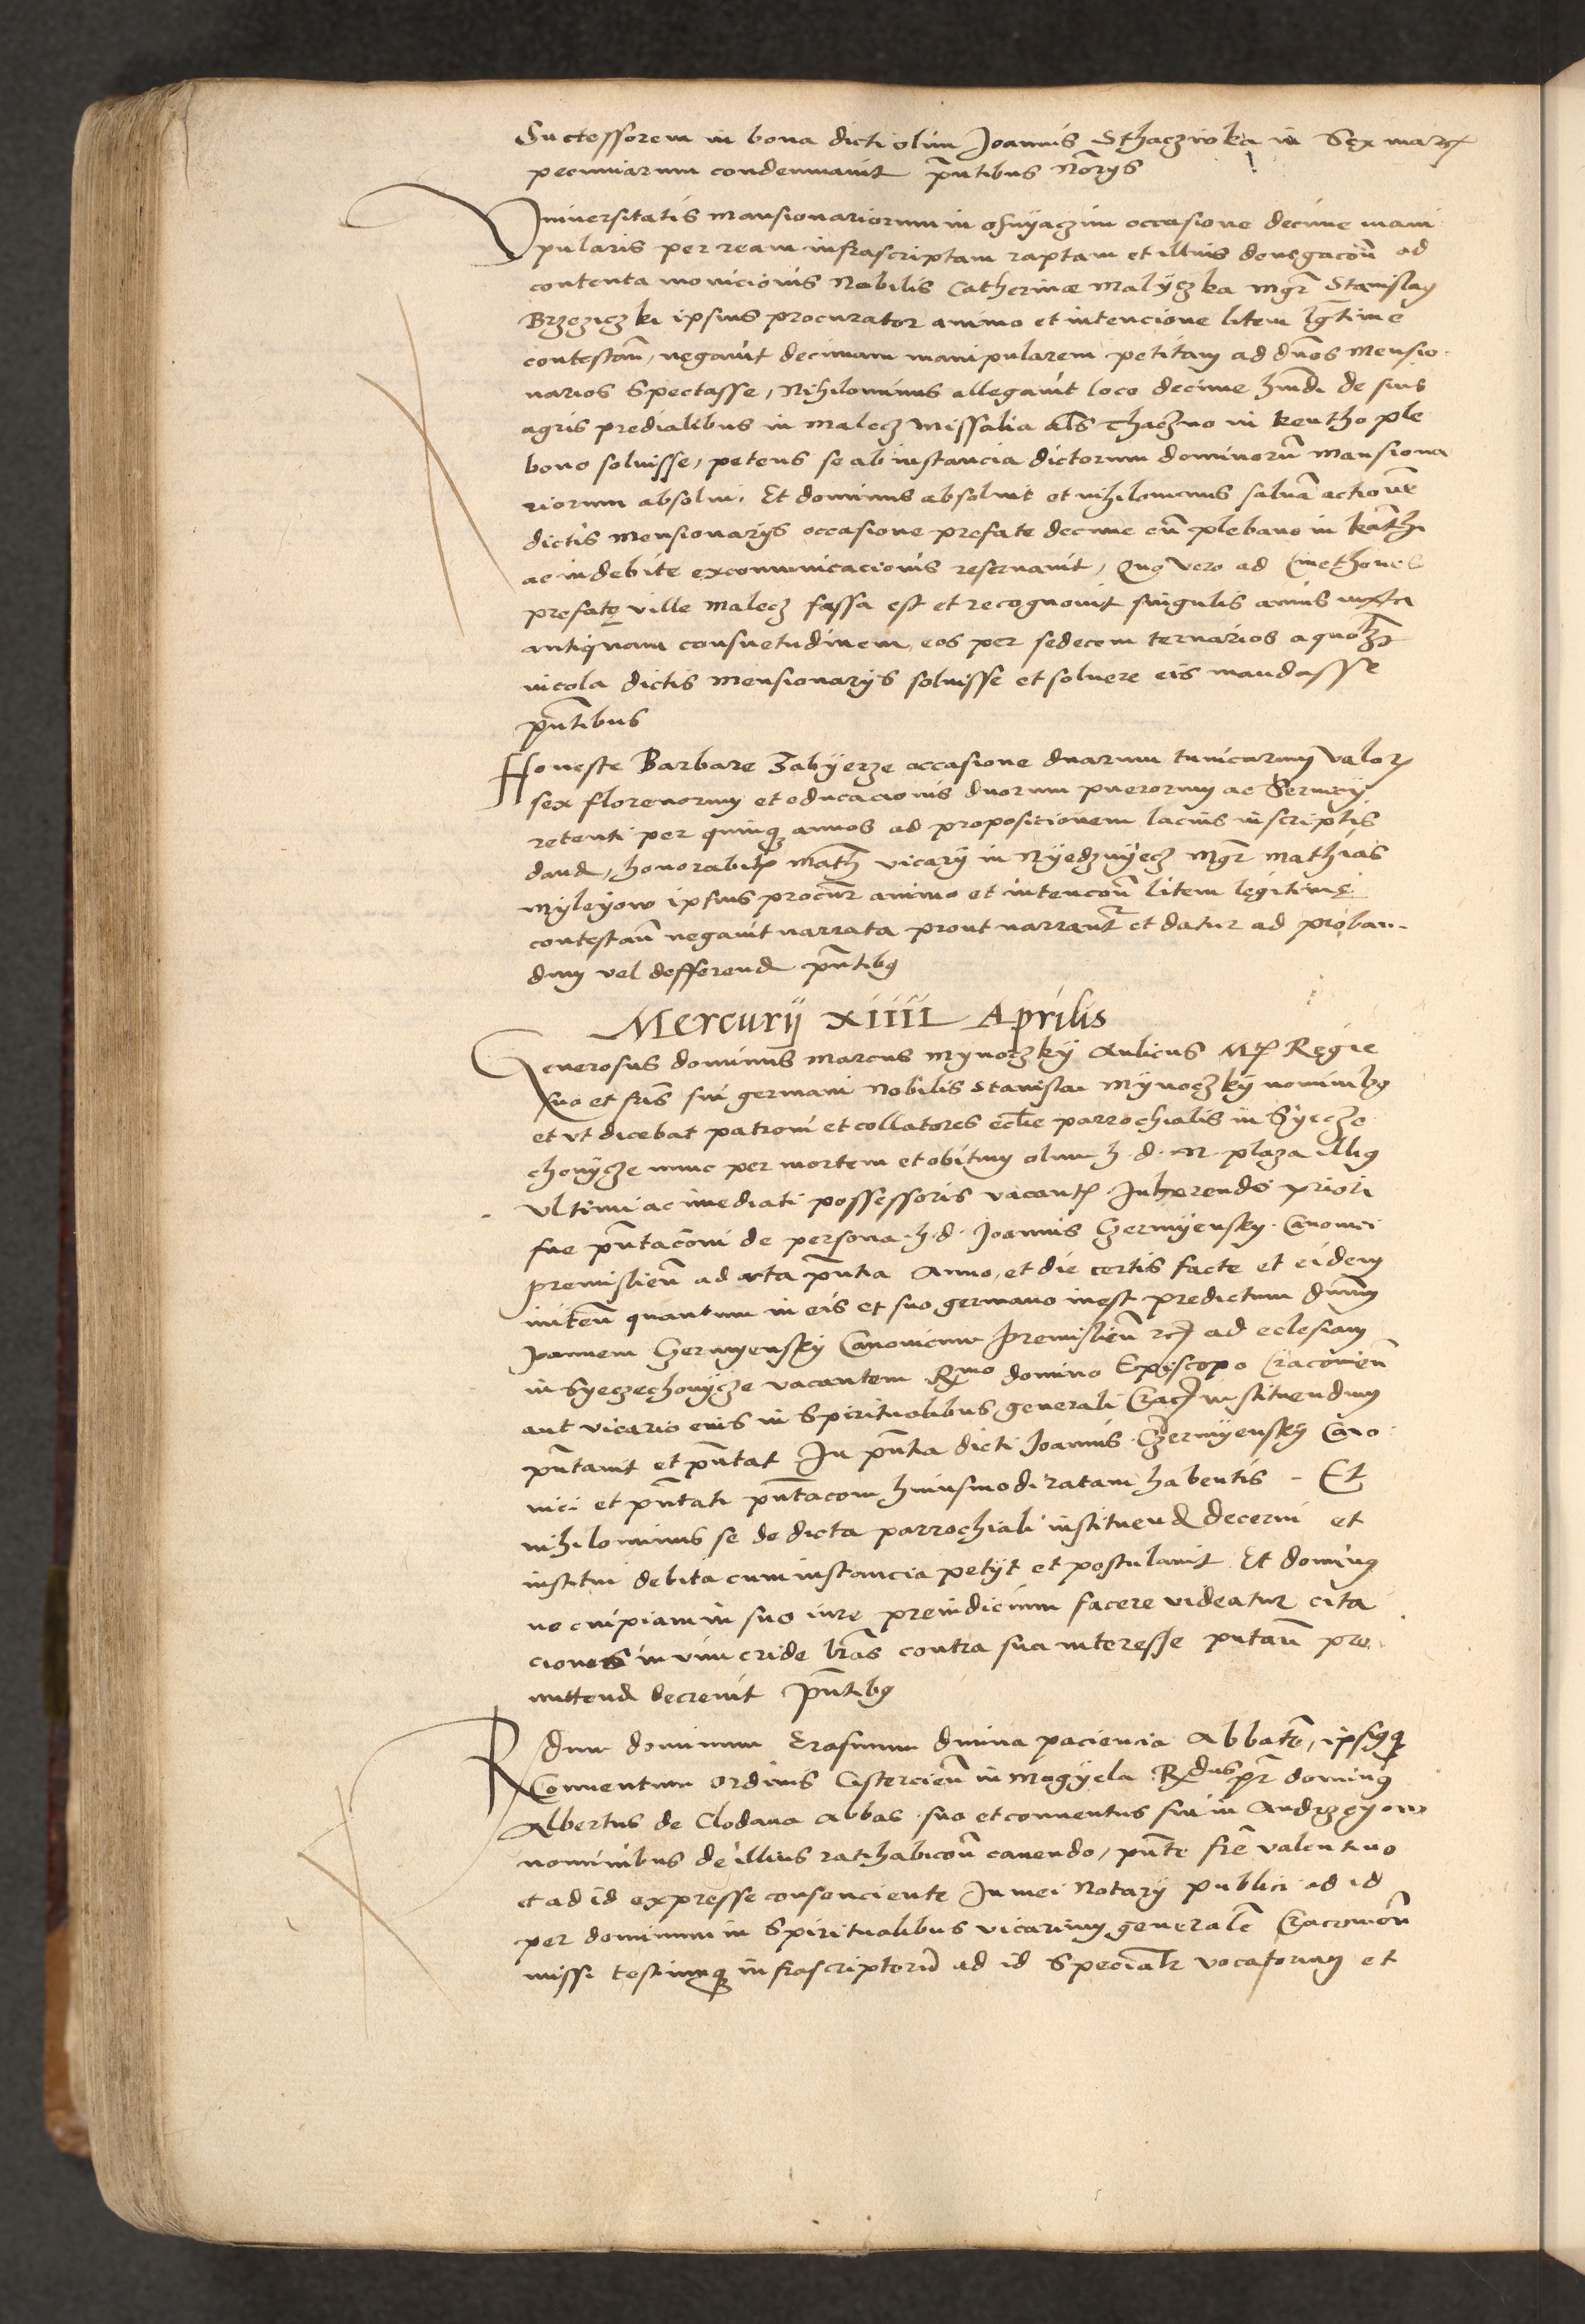 Successorem in bona dicti olim Joannis Sthacziwka in Sex marc
pecuniarum condemnavit pntibus Norijs
Vniversitatis mansionariorum in Osvyaczim occasione decime mani
pularis per ream infrascriptam raptam et illius denegacon ad
contenta monicionis Nobilis Catherinæ Malyczka mgr Stanislaus
Brzeziczki ipsius procurator animo et intencione litem lgtime
contestan, negavit decimam manipularem petitam ad dnos Mensio
narios Spectasse, Nihilominus allegavit loco decime hmdi de suis
agris predialibus in Malecz Missalia als thaczmo in Kentho ple
bono solvisse, petens se ab instancia dictorum dominoru Mansiona
riorum absolvi, Et dominus absolvit et nihilominus salva actione
dictis Mensionarijs occasione prefate decime cu plebano in Kathi
ac indebite excommunicacionis reservavit, Quo vero ad Cmethones
prefate ville Malecz fassa est et recognovit singulis annis iuxta
antiquam consuetudinem, eos per sedecem ternarios a quolz
incola dictis Mensionarijs solvisse et solvere eis mandasse
pntibus
Honeste Barbare Zabyerze occasione duarum tunicarum valor
sex florenorum et educacionis duorum puerorum ac Servicij
retenti per quinq annos ad propositionem lacius in scriptis
dand, honorabil Math vicarij in Nyedzvyecz Mgr Mathias
Myleyow ipsius procur animo et intencon litem legitime
contestan negavit narrata prout narrantr et datur ad proban
dum vel defferend pntibus
Mercurij XIIII Aprilis
Generosus dominus Marcus Mynoczky Aulicus Mtis Regie
suo et fris sui germani Nobilis Stanislai Mynoczky nominibus
et vt dicebat patroni et collatores eclie parrochialis in Syecze
chovycze nunc per mortem et obitum olim h. d. N. plaza illius
vltimi ac imediati possessoris vacant. Inherendo priori
sue pntacioni de persona h. d. Joannis Czermyensky Canonici
premislien ad acta pntia Anno, et die certis facte et eidem
initen quantum in eis et suo germano inest predictum dnum
Joannem Czermyensky Canonicum premislien etc ad eclesiam
in Syeczechovycze vacantem Rmo domino Episcopo Cracovien
aut vicario eius in Spiritualibus generali Crac instituendum
pntavit et pntat In pntia dicti Joannis Czermyensky Cano
nici et pntati pntacon huiusmodi ratam habentis - Et
nihilominus se de dicta parrochiali instituend decerni et
institui debita cum instancia petijt et postulavit Et dominus
ne cuipiam in suo iure preiudicium facere videatur cita
ciones in vim cride lras contra sua interesse putan pro
mittend decrevit pntibus
Rdum dominum Erasmum divina paciencia Abbate, ipsumq
Conventum Ordinis Cistercien in Mogyela Rdus pr dominus
Albertus de Clodava Abbas suo et conventus sui in Andrzeyow
nominibus de illius ratihabicon cavendo, pnte fre valentino
et ad id expresse consenciente In mei Notarij publici ad id
per dominum in Spiritualibus vicarium generale Cracovien
missi testiumq infrascriptoru ad id Specialr vocatorum et